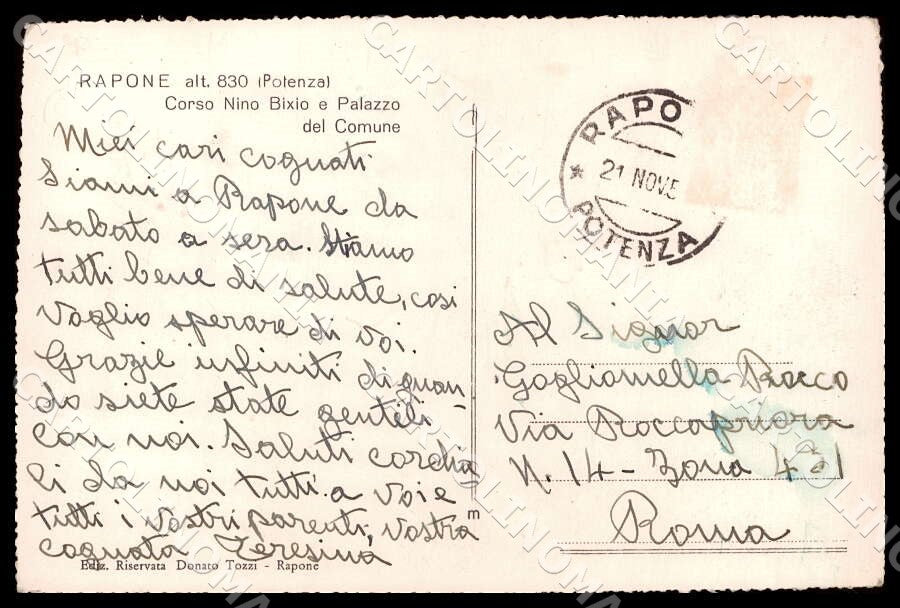 RAPONE alt. 830 (Potenza)
Corso Nino Bixio e Palazzo
del Comune
Miei cari cognati
Siami a Rapone da
sabato a sera. Stiamo
tutti bene di salute, cosi
voglio sperare di voi.
Grazie infiniti di quan-
do siete state gentili
con noi. Saluti cordia-
li da noi tutti a voi e
tutti i vostri parenti, vostra
cognata Teresina
m
Ediz. Riservata Donato Tozzi - Rapone
RAPO
21 NOV.5
POTENZA
Al Signor
Goglianella Rocco
Via Roccapriora
N. 14 - Zona
Roma
CARTOLINOMANIA